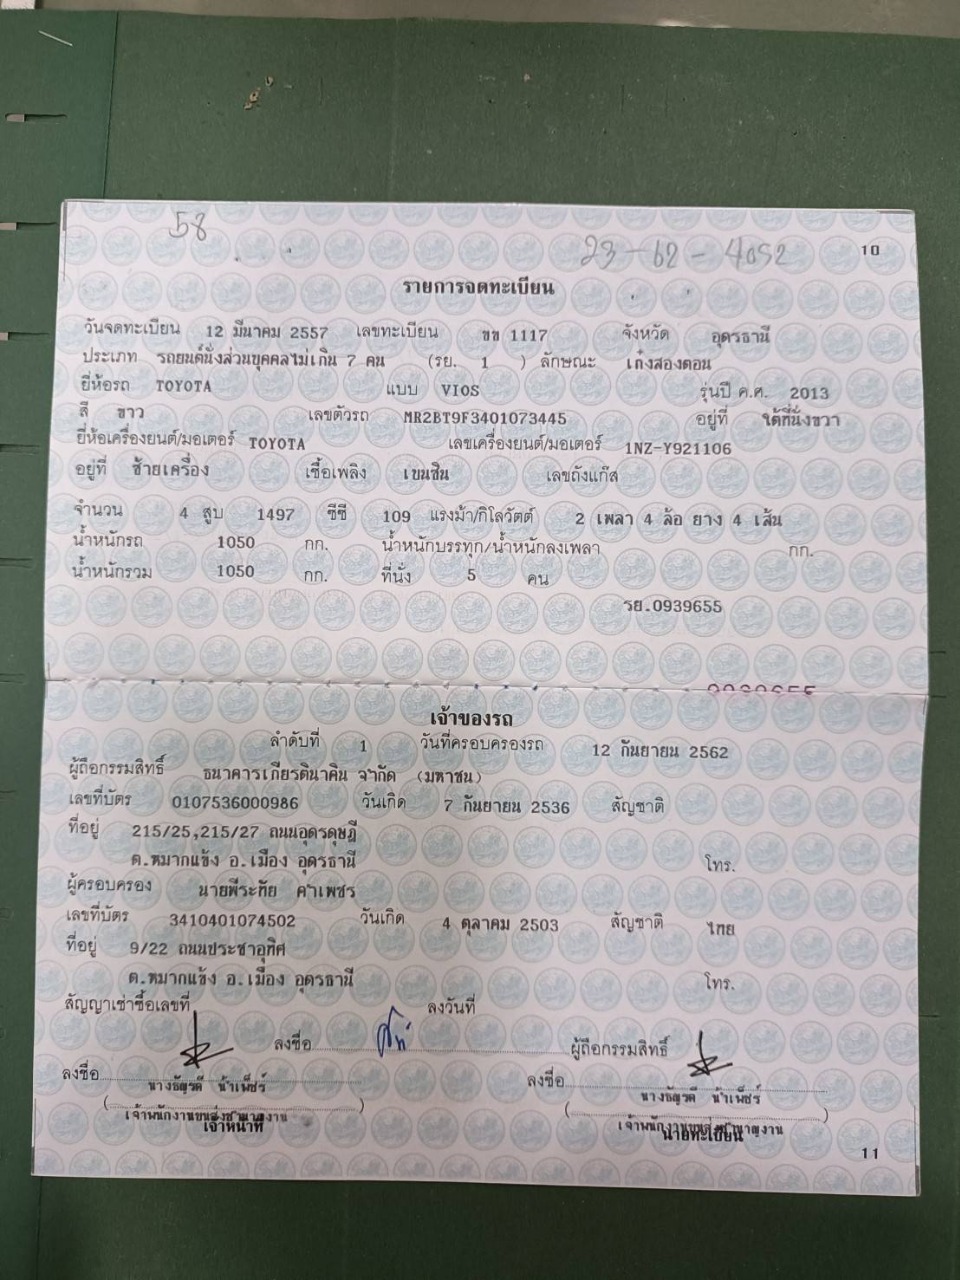 58
23-62-4052
10
รายการจดทะเบียน
วันจดทะเบียน 12 มีนาคม 2557 เลขทะเบียน ขข 1117 จังหวัด อุดรธานี
ประเภท รถยนต์นั่งส่วนบุคคลไม่เกิน 7 คน (รย. 1 ) ลักษณะ เก๋งสองตอน
ยี่ห้อรถ TOYOTA แบบ VIOS รุ่นปี ค.ศ. 2013
สี ขาว เลขตัวรถ MR2BT9F3401073445 อยู่ที่ ใต้ที่นั่งขวา
ยี่ห้อเครื่องยนต์/มอเตอร์ TOYOTA เลขเครื่องยนต์/มอเตอร์ 1NZ-Y921106
อยู่ที่ ซ้ายเครื่อง เชื้อเพลิง เบนซิน เลขถังแก๊ส
จำนวน 4 สูบ 1497 ซีซี 109 แรงม้า/กิโลวัตต์ 2 เพลา 4 ล้อ ยาง 4 เส้น
น้ำหนักรถ 1050 กก. น้ำหนักบรรทุก/น้ำหนักลงเพลา กก.
น้ำหนักรวม 1050 กก. ที่นั่ง 5 คน
รย.0939655
เจ้าของรถ
ลำดับที่ 1 วันที่ครอบครองรถ 12 กันยายน 2562
ผู้ถือกรรมสิทธิ์ ธนาคารเกียรตินาคิน จำกัด (มหาชน)
เลขที่บัตร 0107536000986 วันเกิด 7 กันยายน 2536 สัญชาติ
ที่อยู่ 215/25,215/27 ถนนอุดรดุษฎี
ต.หมากแข้ง อ.เมือง อุดรธานี โทร.
ผู้ครอบครอง นายพีระทัย คำเพชร
เลขที่บัตร 3410401074502 วันเกิด 4 ตุลาคม 2503 สัญชาติ ไทย
ที่อยู่ 9/22 ถนนประชาอุทิศ
ต.หมากแข้ง อ.เมือง อุดรธานี โทร.
สัญญาเช่าซื้อเลขที่ ลงวันที่
ลงชื่อ ผู้ถือกรรมสิทธิ์
ลงชื่อ ลงชื่อ
เจ้าหน้าที่ นายทะเบียน
11